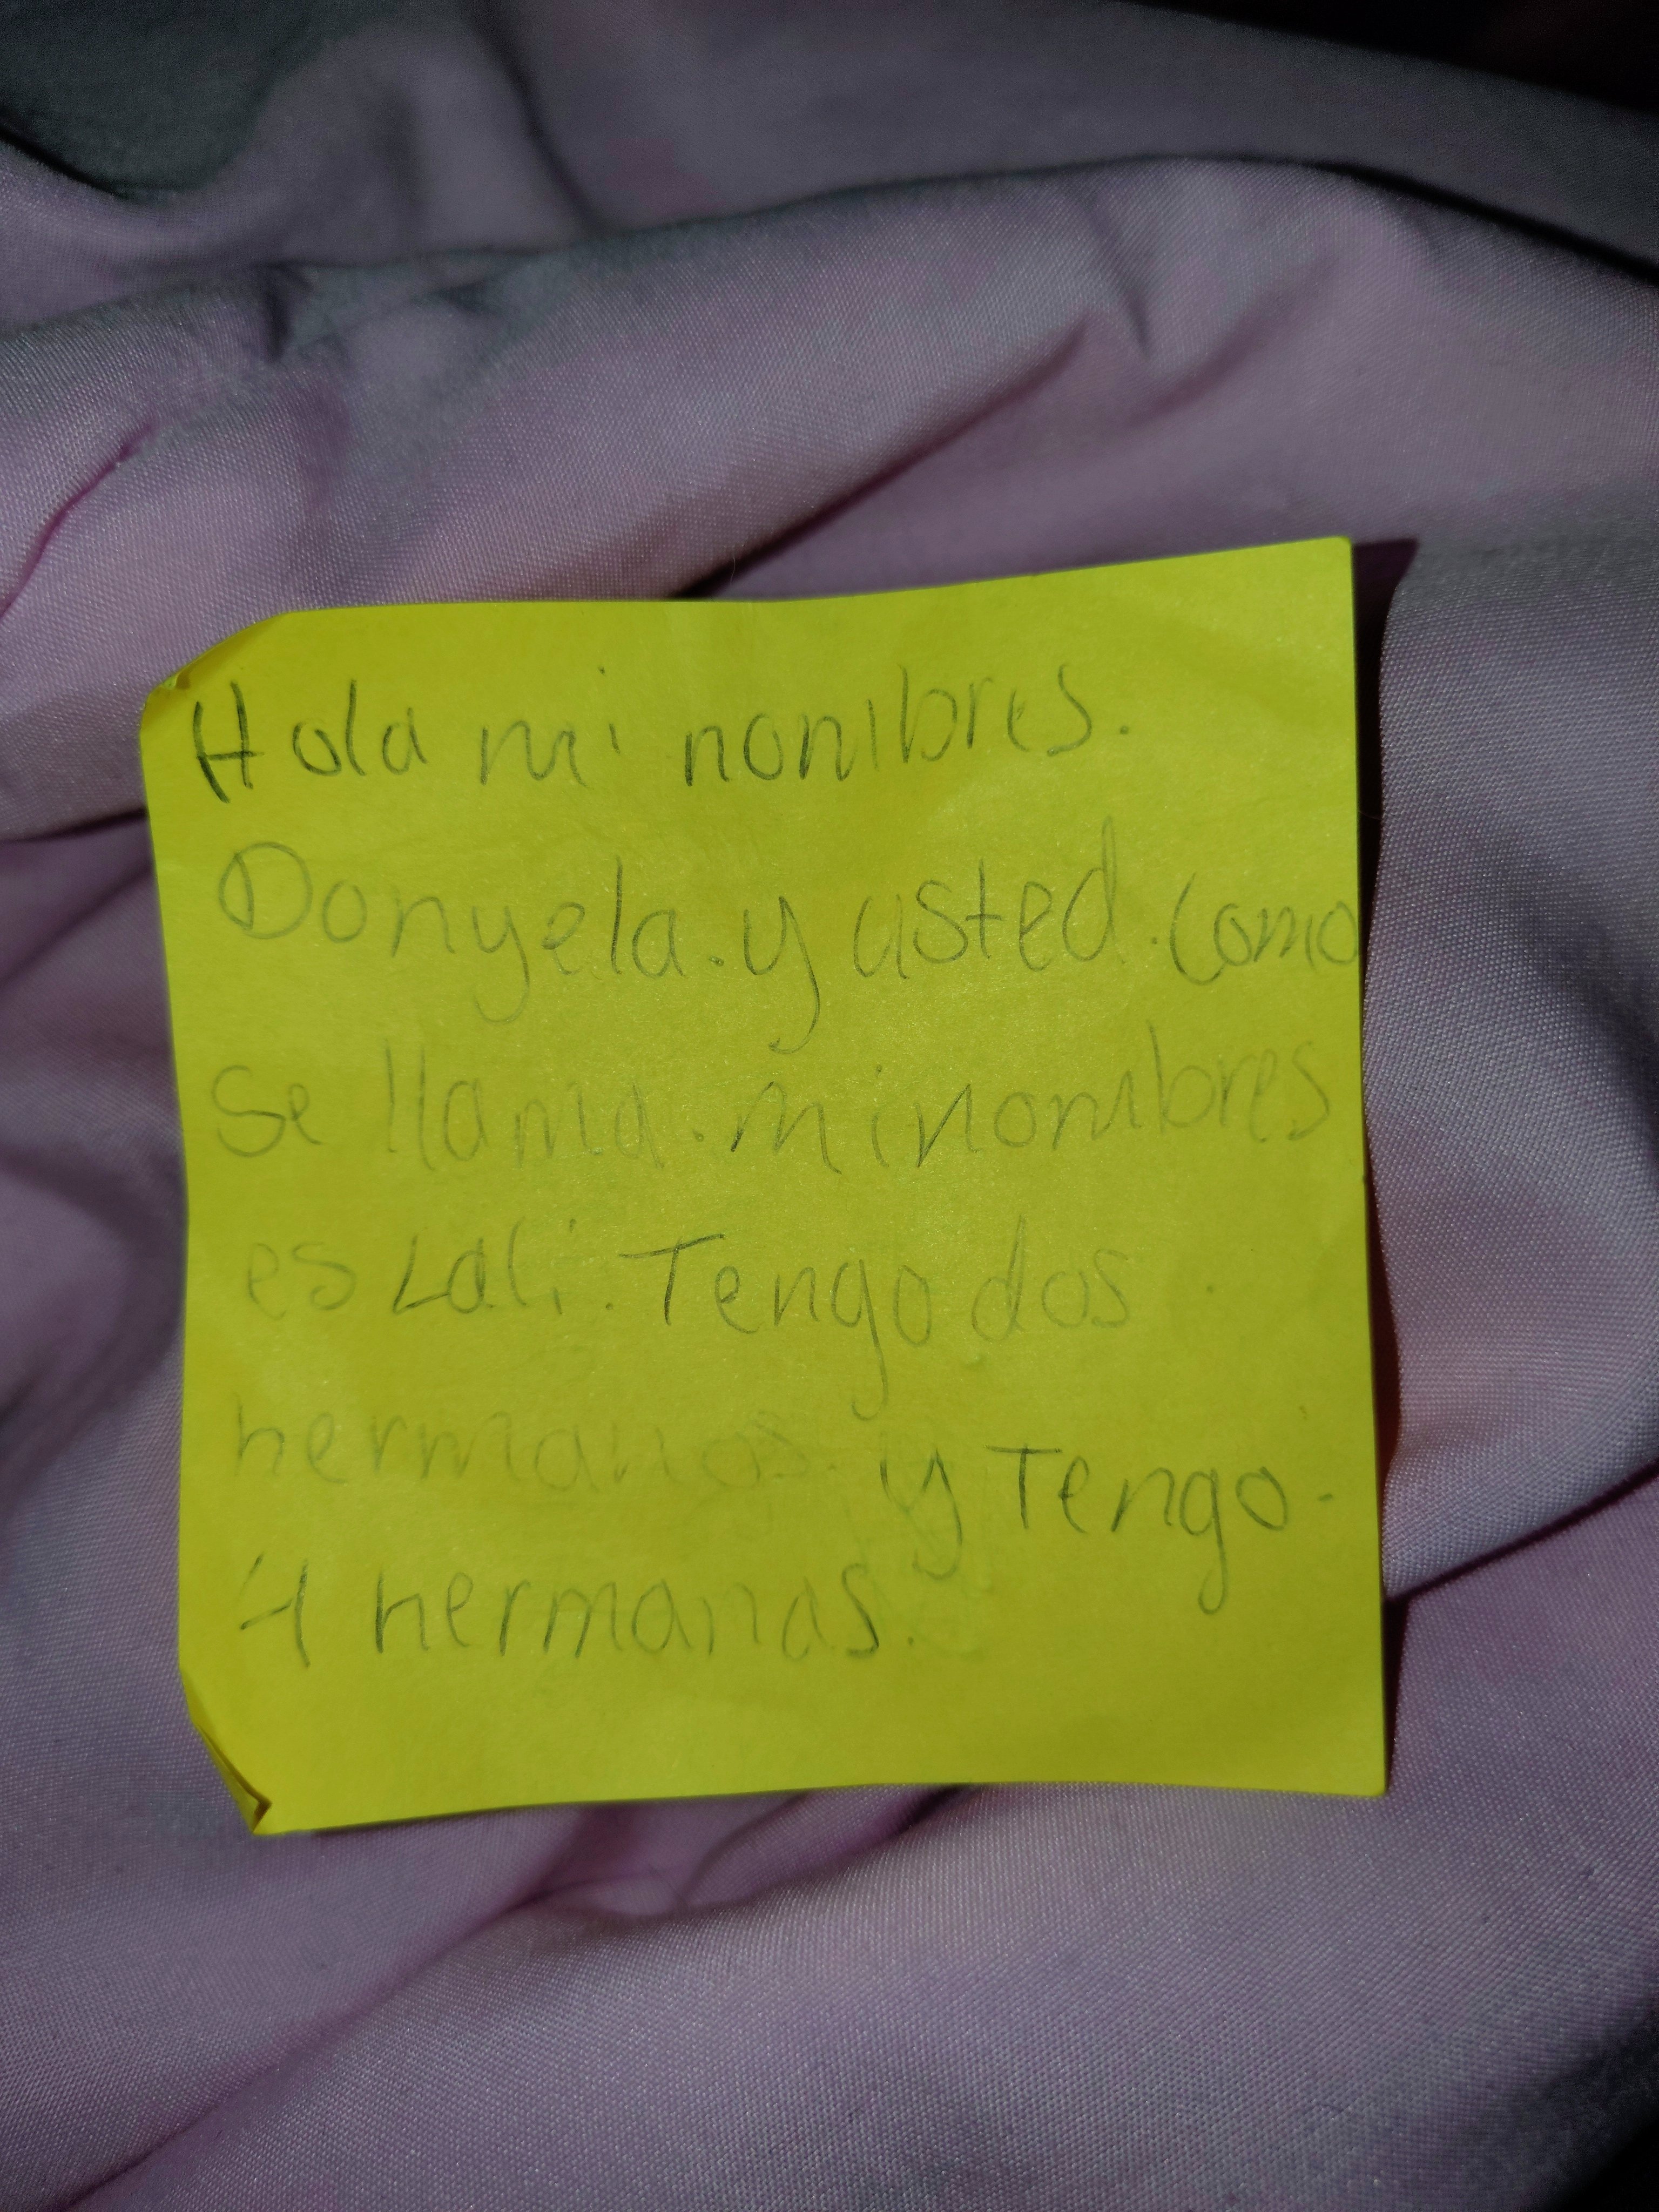 Hola mi nombres.
Donyela. y usted. Como
Se llama. mi nombres
es Lali. Tengo dos
hermanos. y Tengo.
4 hermanas.